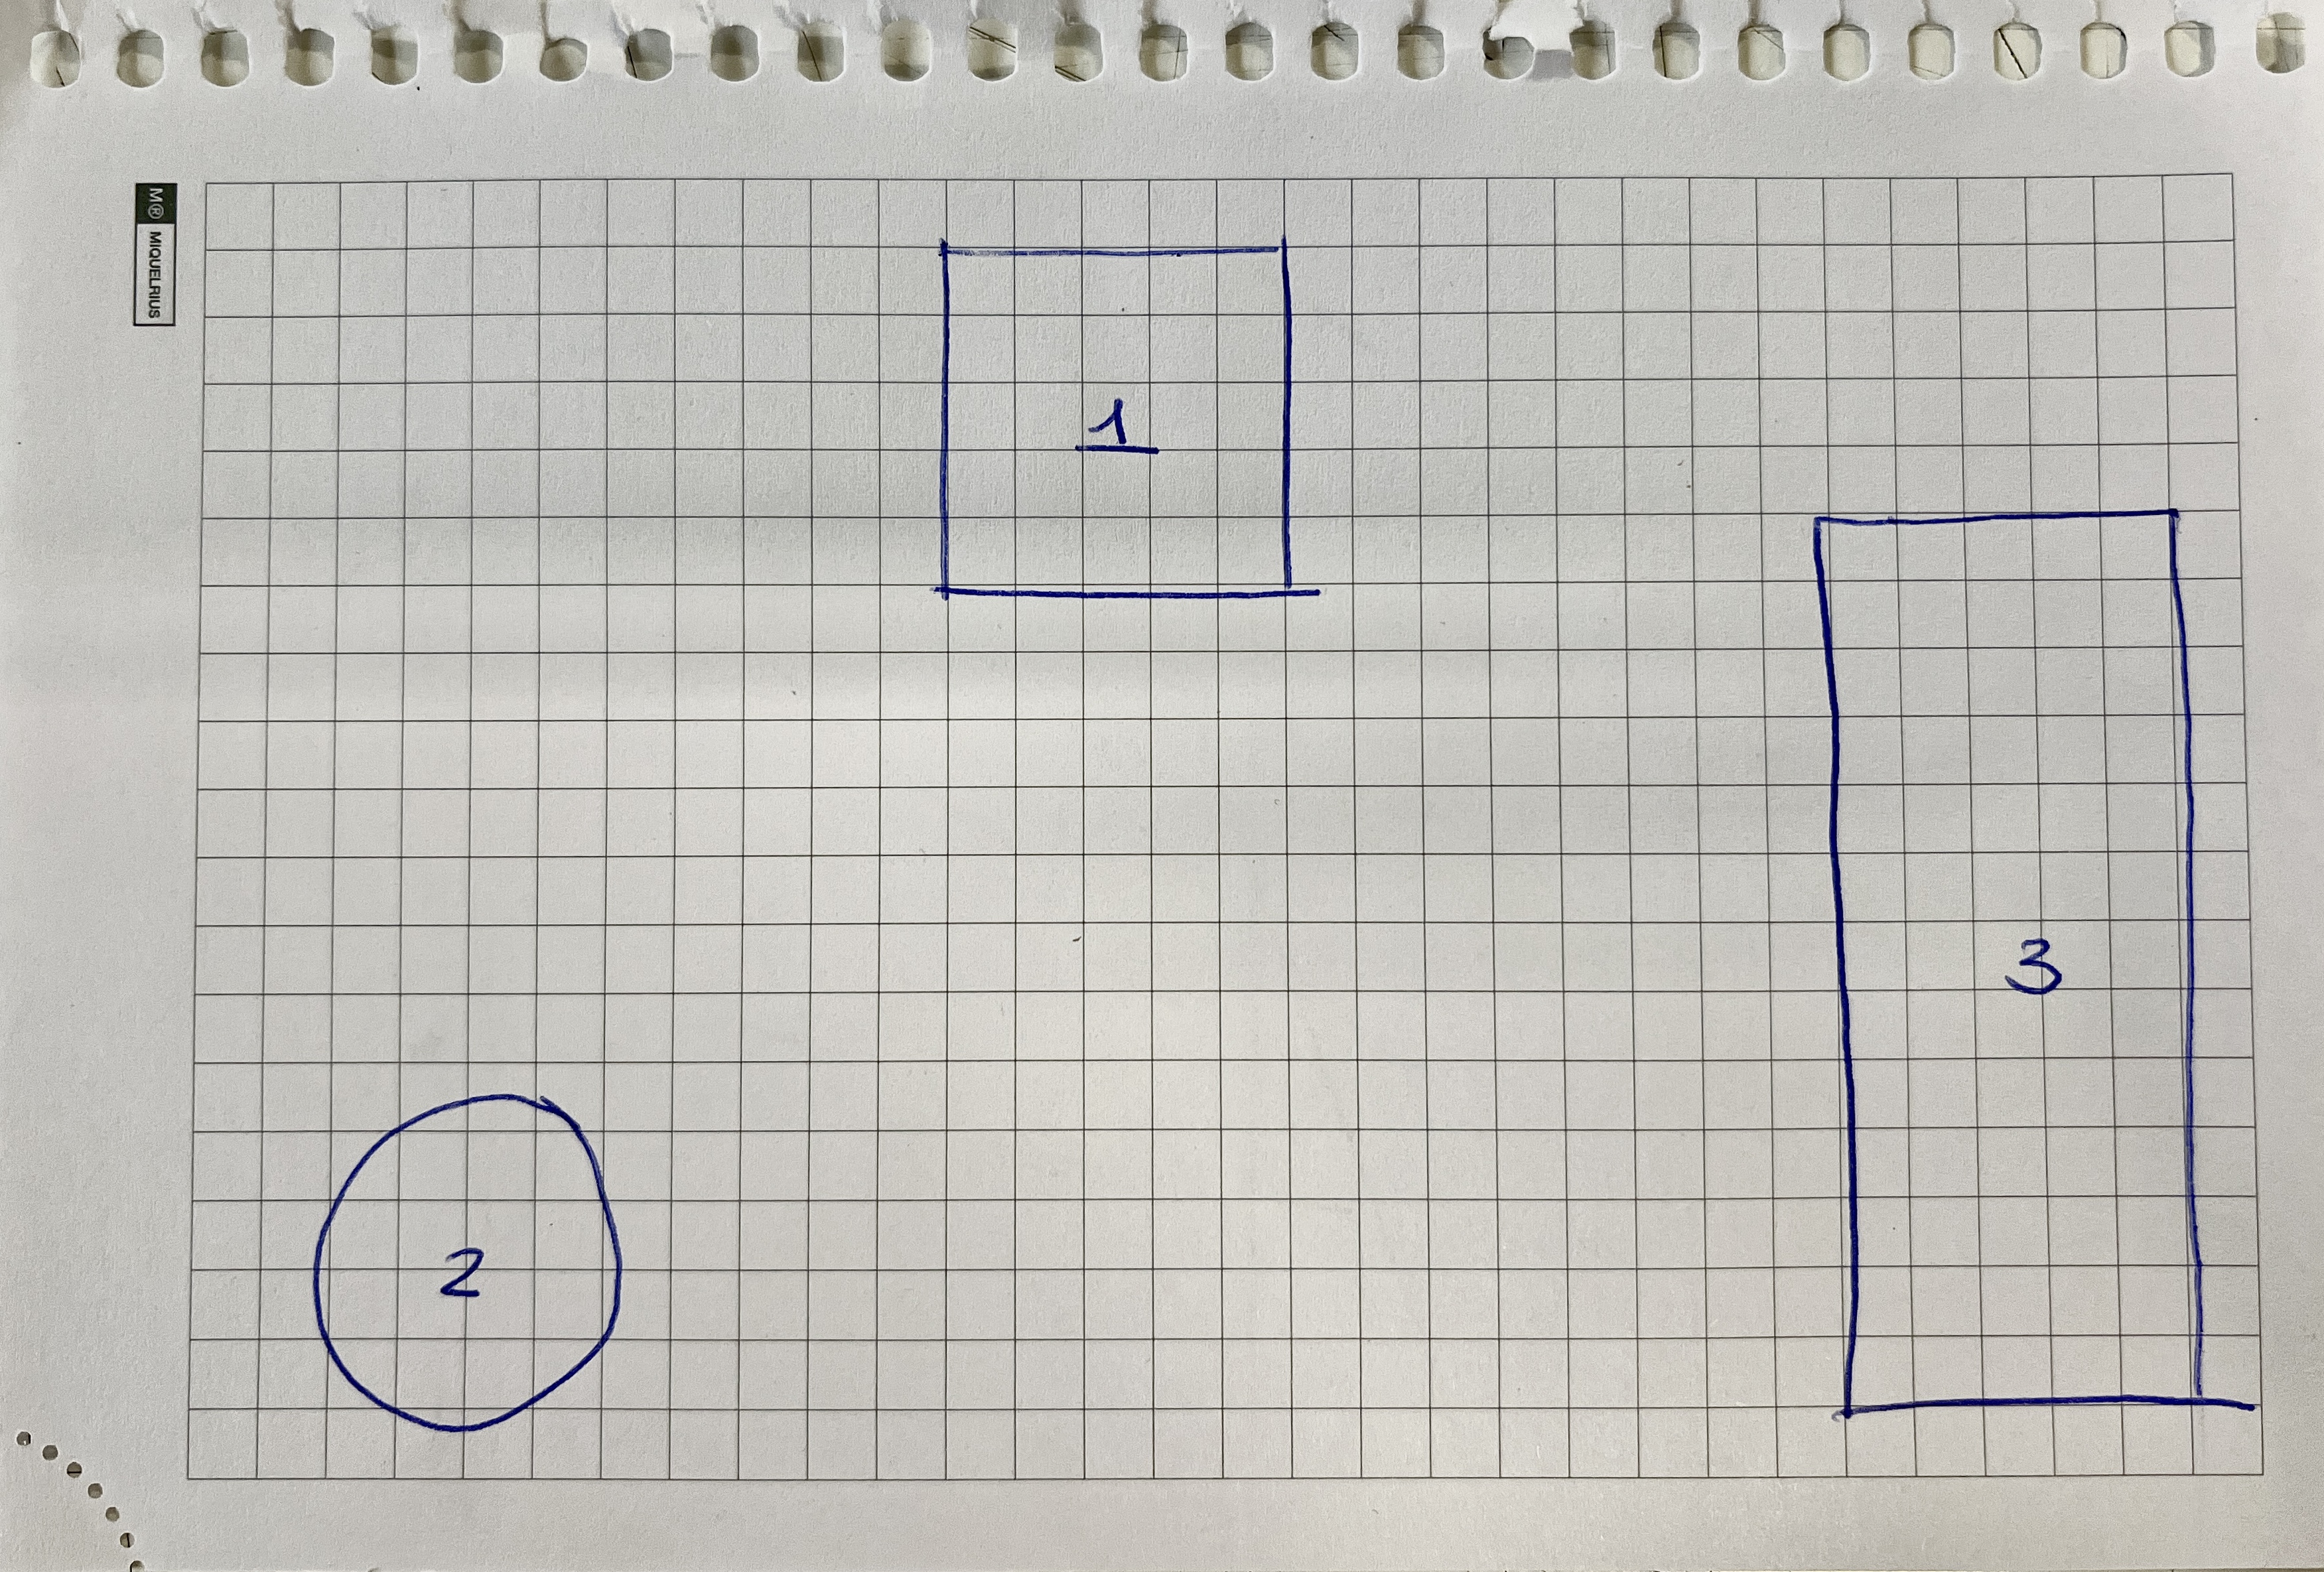 M® MIQUELRIUS
1
3
2